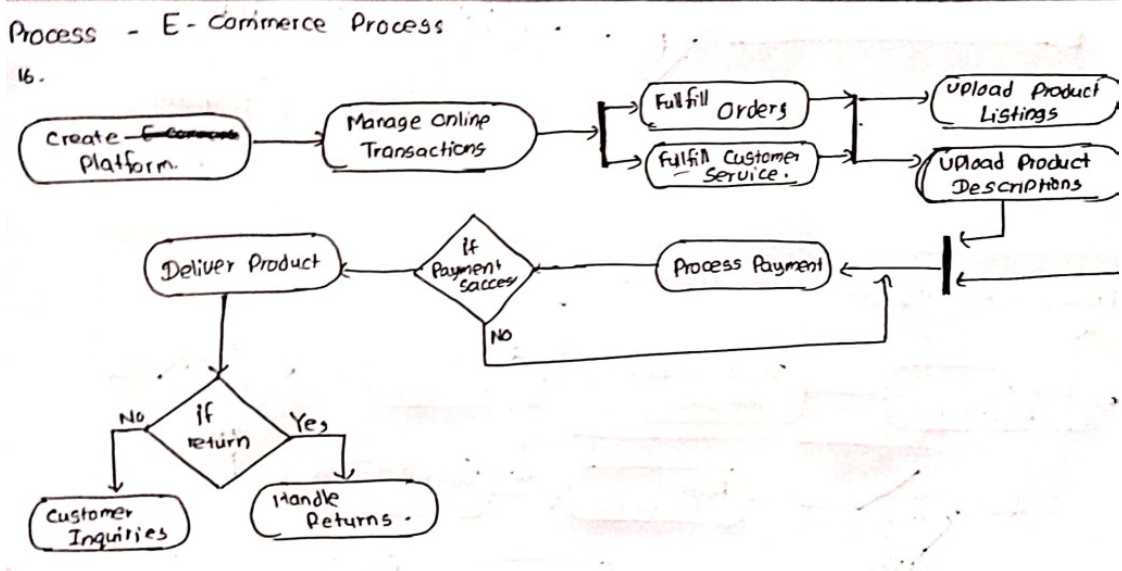 Process - E-Commerce Process
16.
Create
Platform.
Manage Online
Transactions
Fullfill
Orders
Fulfill Customer
Service.
Upload Product
Listings
Upload Product
Descriptions
Deliver Product
if
Payment
succes
Process Payment
No
No
if
return
Yes
Customer
Inquiries
Handle
Returns.